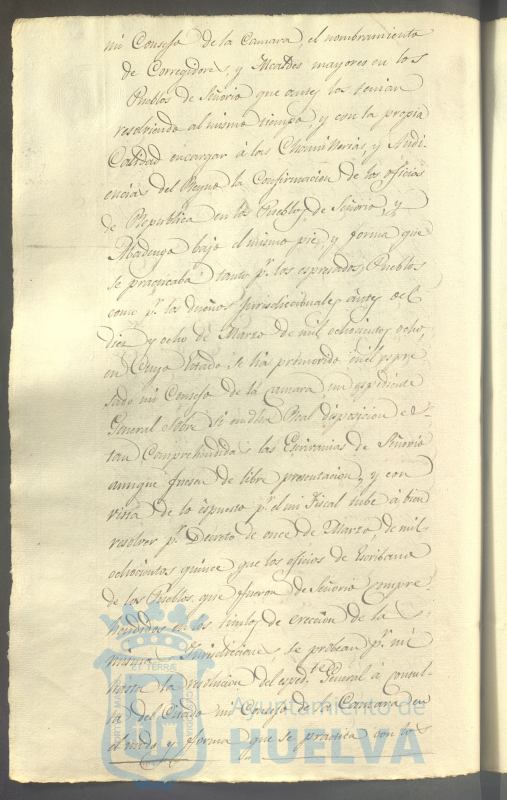 mi Consejo de la Camara, el nombramiento
de Corregidores, y Alcaldes mayores en los
Pueblos de Señorio que antes los tenian
resolviendo al mismo tiempo y con la propia
Calidad encargar á las Chancillerias, y Audi-
encias del Reyno la Confirmacion de los oficios
de Republica en los Pueblos de Señorio, y
Abadengo bajo el mismo pie, y forma que
se practicaba tanto pr. los espresados Pueblos
como pr. los dueños Jurisdiccionales antes del
diez y ocho de Marzo de mil ochocientos ocho,
en Cuyo estado se ha promovido en el espre
sado mi Consejo de la Camara un espediente
General sobre si en dha Real disposicion es-
tan Comprehendidas las Escrivanias de Señorio
aunque fuesen de libre presentacion, y con
vista de lo espuesto pr. el mi Fiscal tube á bien
resolver pr. Decreto de once de Marzo, de mil
ochocientos quince que los oficios de Escribano
de los Pueblos que fueron de Señorio compre-
hendidos en los titulos de ereccion de las
mismas Jurisdiciones, se probean pr. mi
hasta la resolucion del espedte. General á consul-
ta del Citado mi Consejo de la Camara en
el modo y forma que se practica con los
Ayuntamiento de
HUELVA